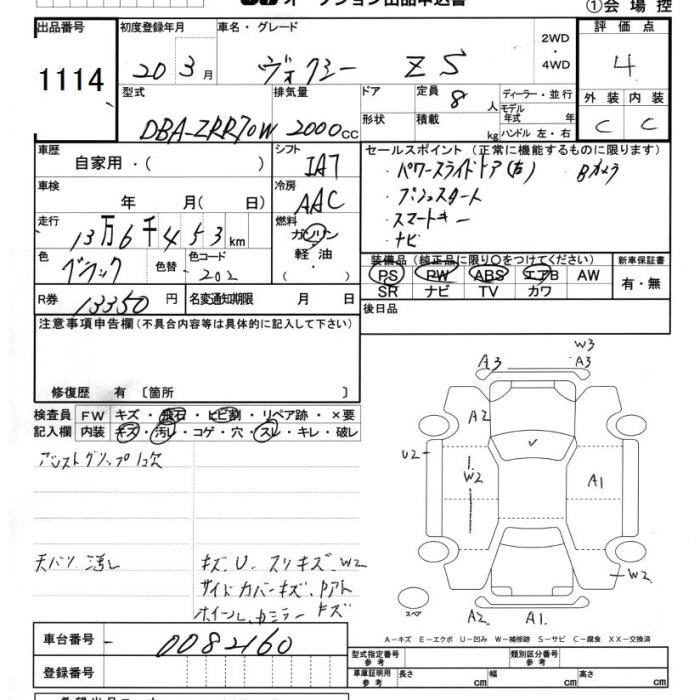 オークション出品申込書
①会場控
出品番号 初度登録年月 車名・グレード 評価点
1114 20 3月 ヴォクシー ZS 2WD・4WD 4
型式 排気量 ドア 定員 8 人 ディーラー・並行 外装 内装
DBA-ZRR70W 2000cc 形状 積載 kg モデル年式 年 C C
ハンドル 左・右
車歴 シフト セールスポイント (正常に機能するものに限ります)
自家用・( ) IAT ・パワースライドドア(左) Bカメラ
車検 冷房 ・プッシュスタート
年 月( 日) AAC ・スマートキー
走行 燃料 ・ナビ
13万6千453km ガソリン
色 色替 色コード 軽油 装備品 (純正品に限り○をつけてください) 新車保証書
ブラック 202 ・( ) PS PW ABS エアB AW 有・無
SR ナビ TV カワ
R券 13350円 名変通知期限 月 日 後日品
注意事項申告欄(不具合内容等は具体的に記入して下さい)
修復歴 有 〔箇所 〕
検査員 FW キズ・飛石・ヒビ割・リペア跡・×要
記入欄 内装 キズ・汚レ・コゲ・穴・スレ・キレ・破レ
アシストグリップ1コ欠
天バリ 汚レ
キズ、U、スリキズ、W2
サイドカバーキズ、Pアト
ホイール、Dミラー キズ
W3
A3 A3
A2
U2
W2 A1
W2
スペア
A2 A1
A−キズ E−エクボ U−凹み W−補修跡 S−サビ C−腐食 XX−交換済
車台番号 0082160
登録番号
型式指定番号 参考 類別区分番号 参考
車庫証明用 参考 長さ cm 幅 cm 高さ cm